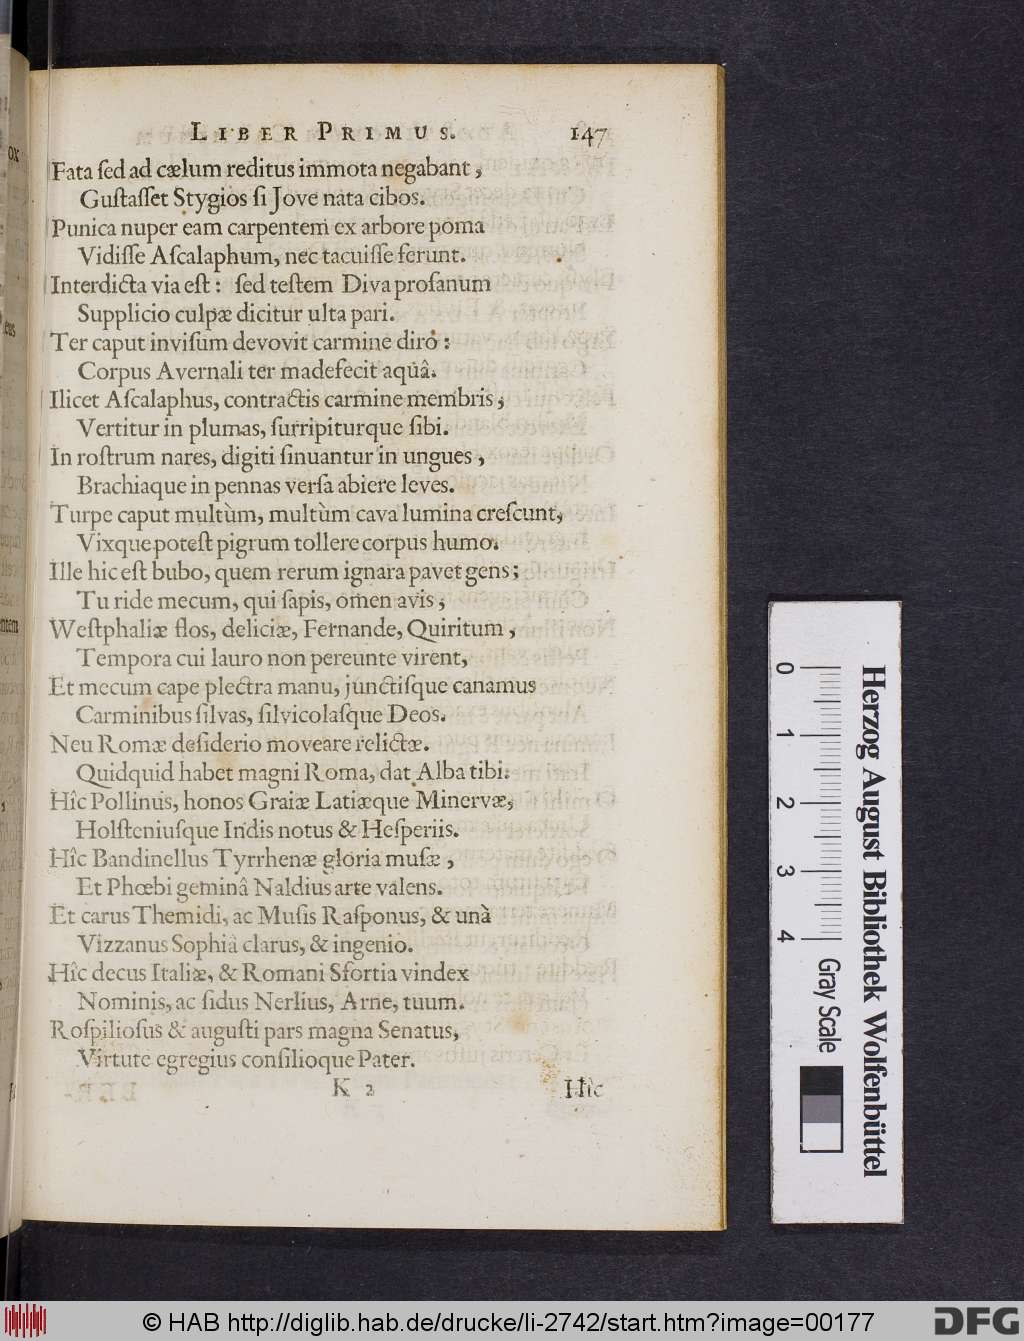 LIBER PRIMUS. 147
Fata ſed ad cælum reditus immota negabant,
Guſtaſſet Stygios ſi Jove nata cibos.
Punica nuper eam carpentem ex arbore poma
Vidiſſe Aſcalaphum, nec tacuiſſe ferunt.
Interdicta via eſt: ſed teſtem Diva profanum
Supplicio culpæ dicitur ulta pari.
Ter caput inviſum devovit carmine diro:
Corpus Avernali ter madefecit aquâ.
Ilicet Aſcalaphus, contractis carmine membris,
Vertitur in plumas, ſurripiturque ſibi.
In roſtrum nares, digiti ſinuantur in ungues,
Brachiaque in pennas verſa abiere leves.
Turpe caput multùm, multùm cava lumina creſcunt,
Vixque poteſt pigrum tollere corpus humo.
Ille hic eſt bubo, quem rerum ignara pavet gens;
Tu ride mecum, qui ſapis, omen avis,
Weſtphaliæ flos, deliciæ, Fernande, Quiritum,
Tempora cui lauro non pereunte virent,
Et mecum cape plectra manu, junctiſque canamus
Carminibus ſilvas, ſilvicolaſque Deos.
Neu Romæ deſiderio moveare relictæ.
Quidquid habet magni Roma, dat Alba tibi.
Hîc Pollinus, honos Graiæ Latiæque Minervæ,
Holſteniuſque Indis notus & Heſperiis.
Hîc Bandinellus Tyrrhenæ gloria muſæ,
Et Phœbi geminâ Naldius arte valens.
Et carus Themidi, ac Muſis Raſponus, & unà
Vizzanus Sophiâ clarus, & ingenio.
Hîc decus Italiæ, & Romani Sfortia vindex
Nominis, ac ſidus Nerlius, Arne, tuum.
Roſpilioſus & auguſti pars magna Senatus,
Virtute egregius conſilioque Pater.
K 2 Hîc
0 1 2 3 4 Gray Scale
Herzog August Bibliothek Wolfenbüttel
© HAB http://diglib.hab.de/drucke/li-2742/start.htm?image=00177
DFG